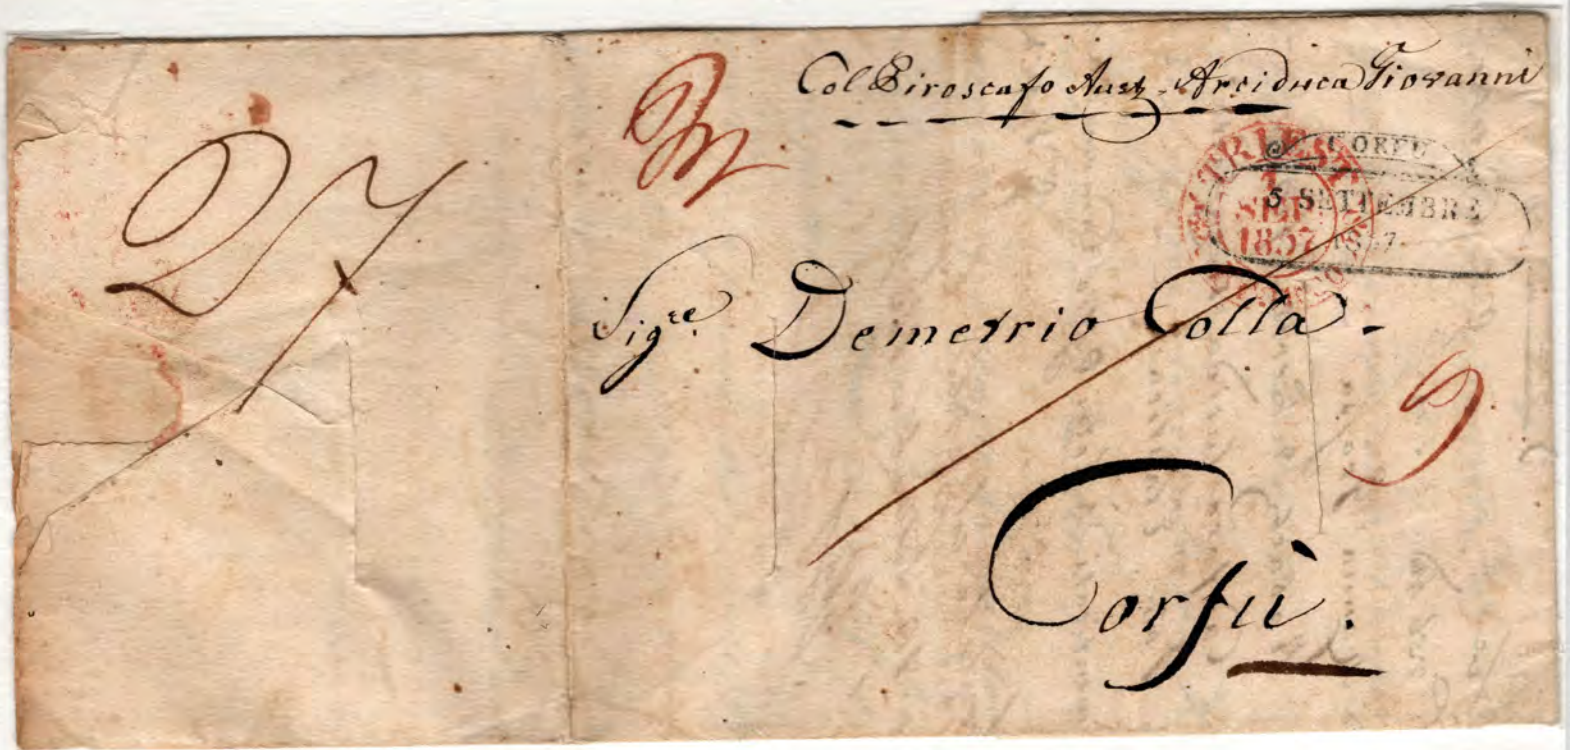 Col Piroscafo Aust. Arciduca Giovanni
TRIEST
SEP
1837
CORFU
5 SETTEMBRE
1837
27
Sigre. Demetrio Colla.
9
Corfù.